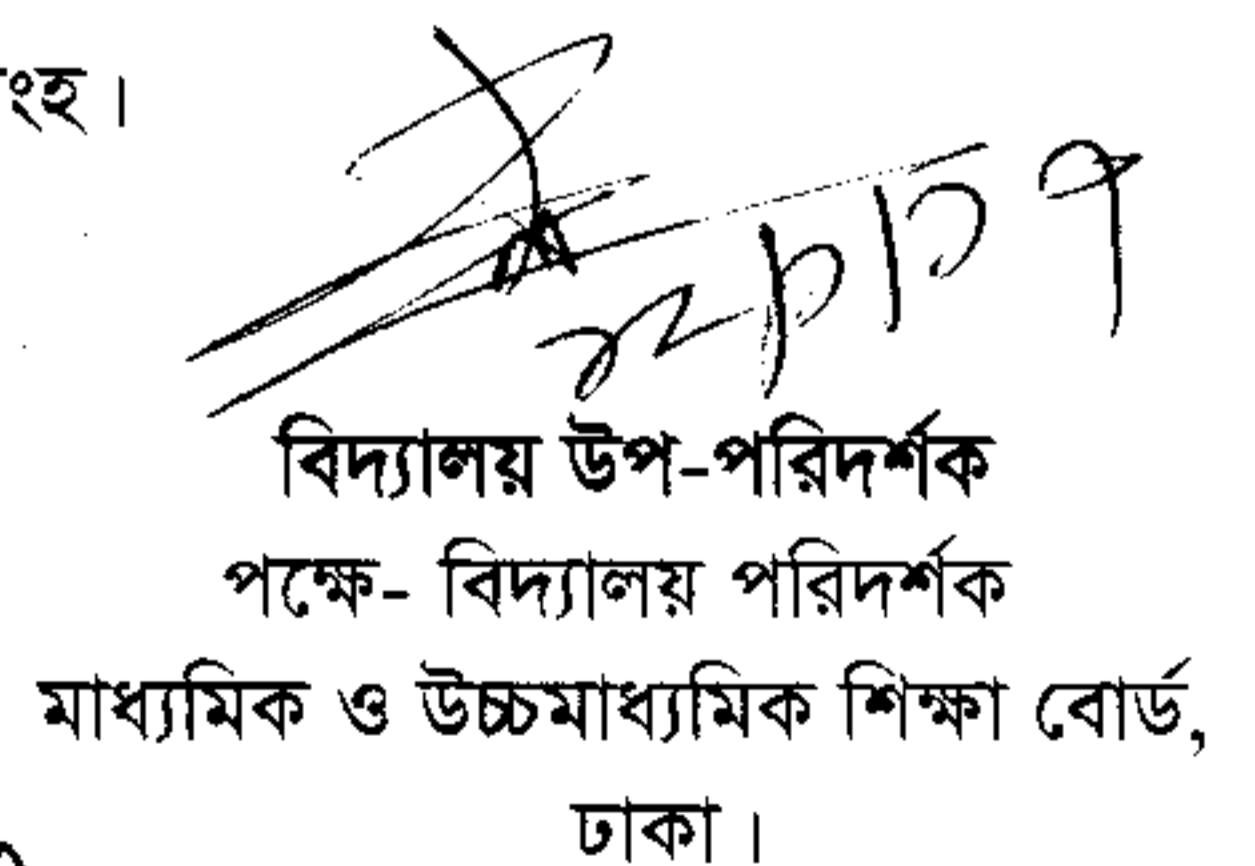 ংহ।
বিদ্যালয় উপ-পরিদর্শক
পক্ষে- বিদ্যালয় পরিদর্শক
মাধ্যমিক ও উচ্চমাধ্যমিক শিক্ষা বোর্ড,
ঢাকা।